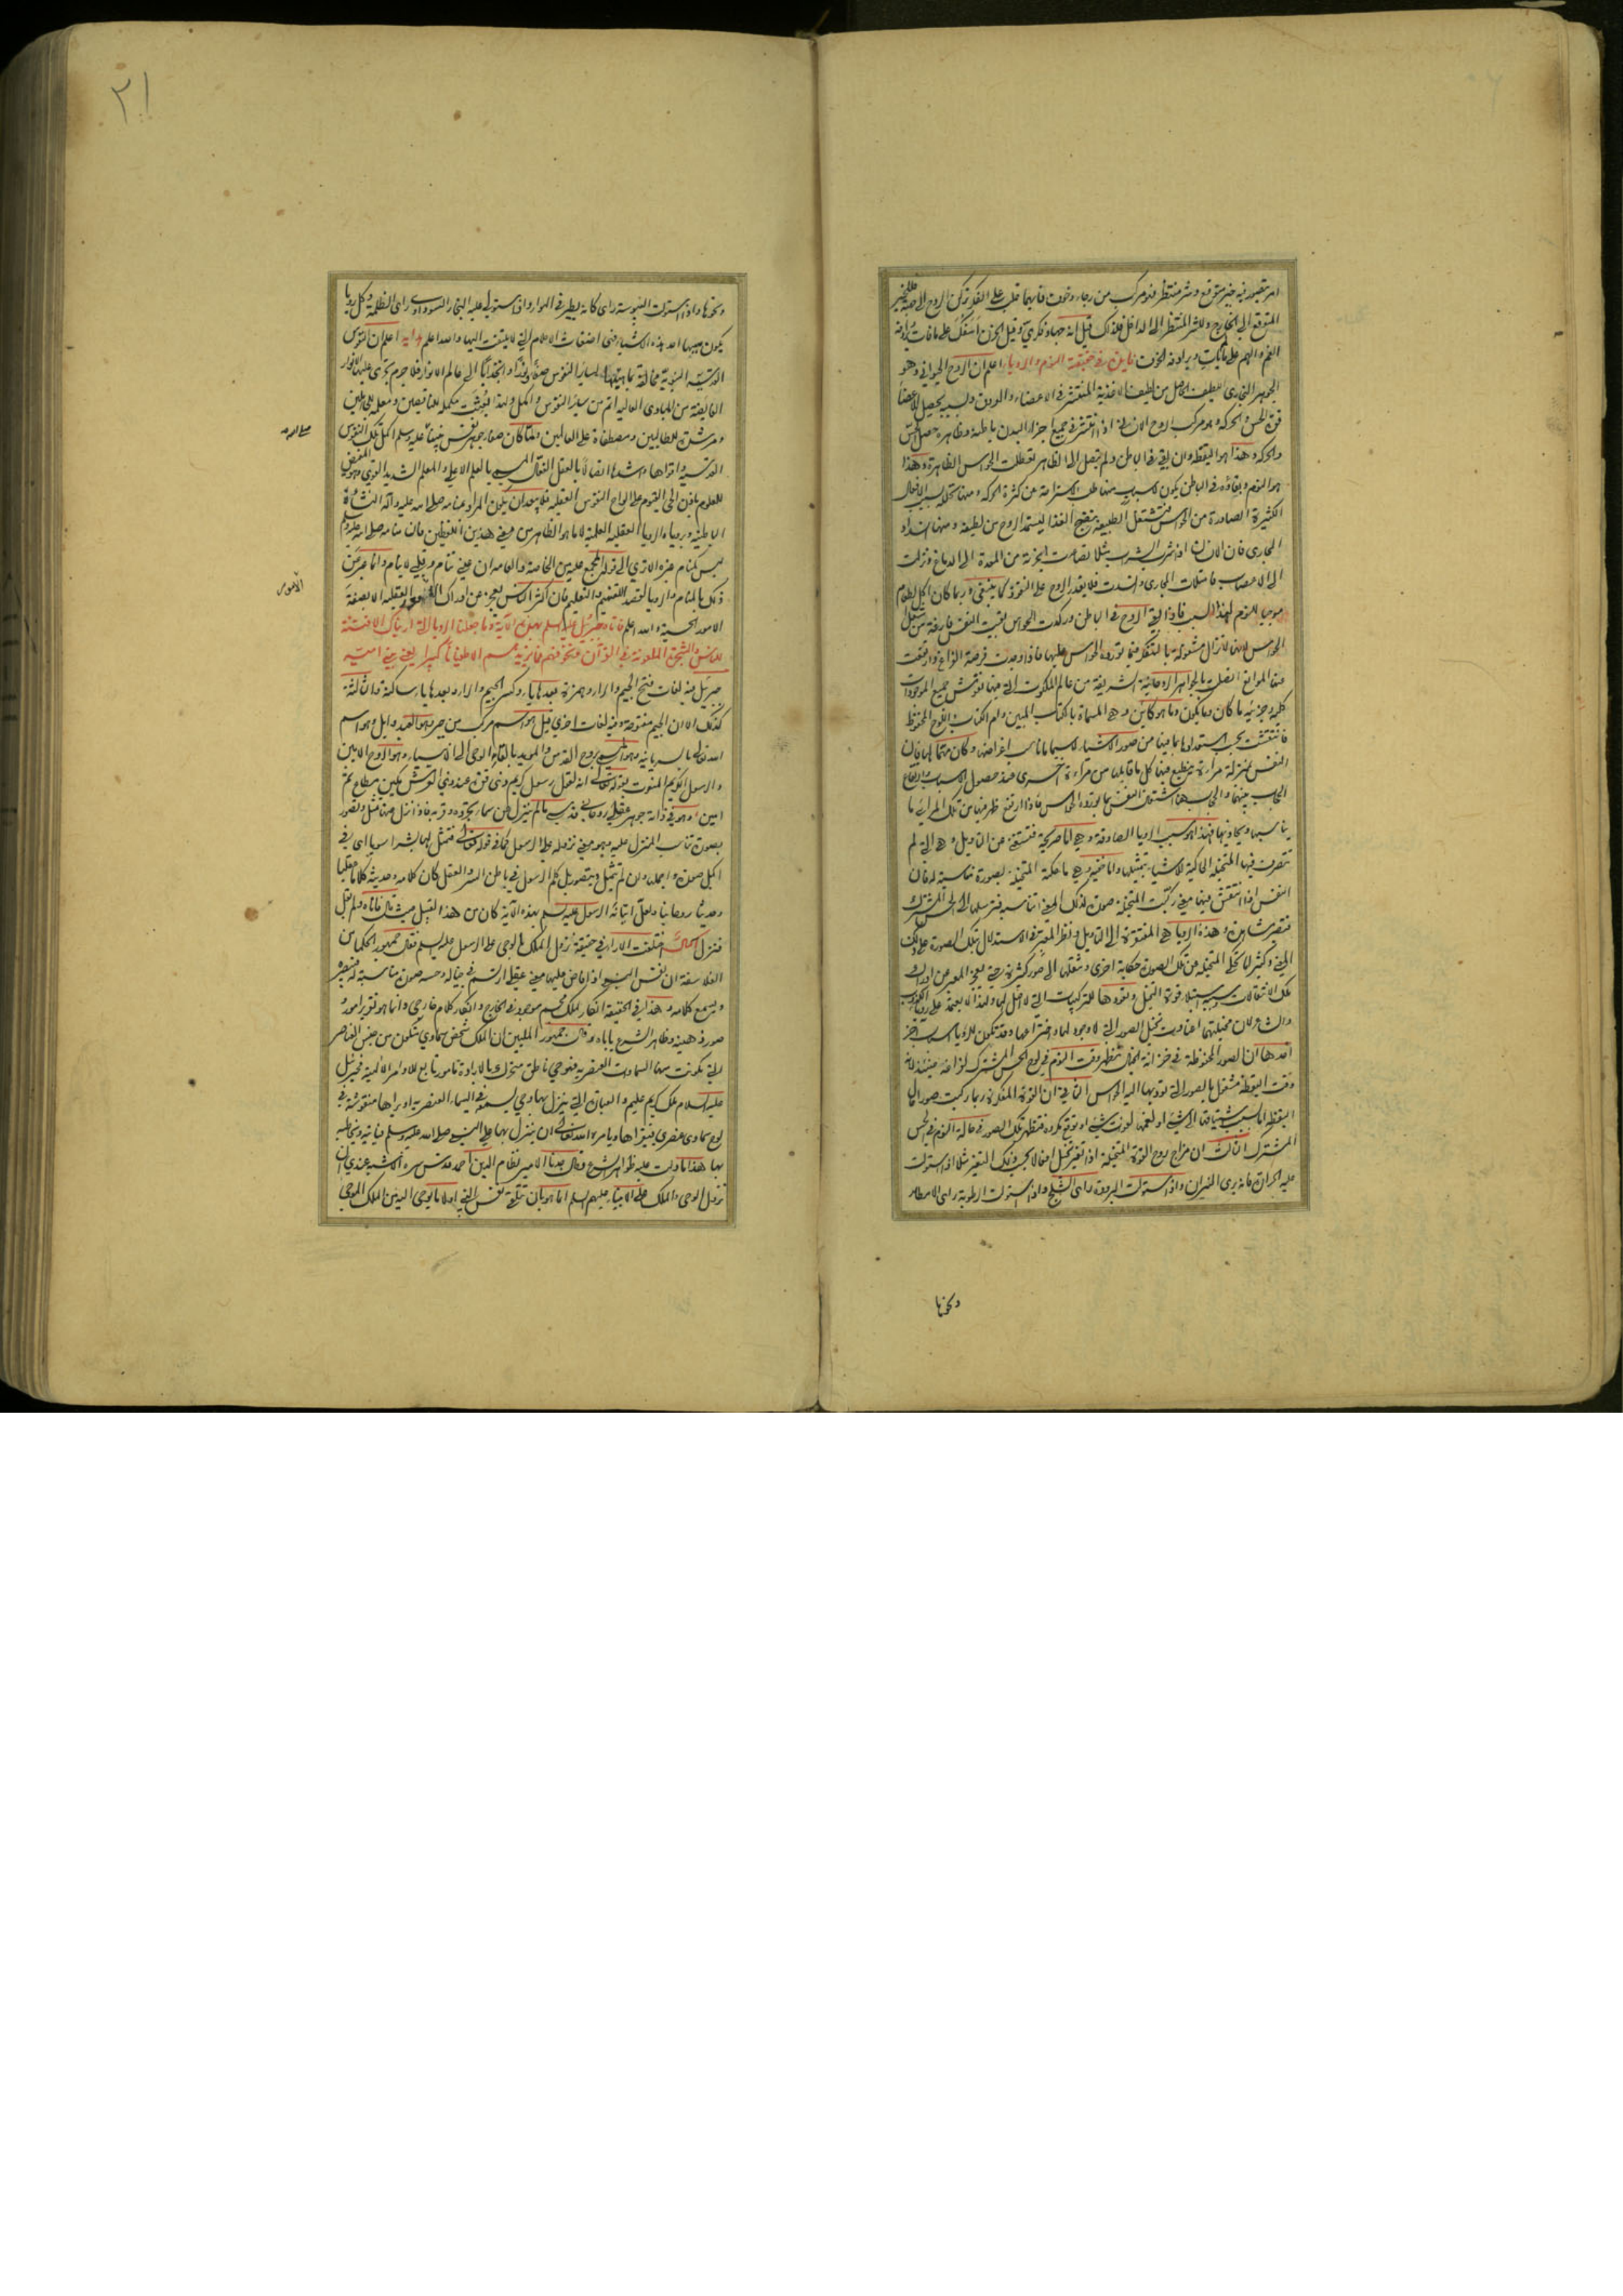 امر يتصور فيه خير متوقع وشر منتظر فهو مركب من رجاء وخوف فايهما غلب على الفكر تحرك الروح الى جهته فللخير
المتوقع الى الخارج وللشر المنتظر الى الداخل فلذلك قيل انه جهاد فكري وقيل الحزن اسف على ما فات ويرادفه
الغم والهم على ما هو آت ويرادفه الخوف في حقيقة النوم والرويا اعلم ان الروح الحيواني وهو
الجوهر البخاري اللطيف الحاصل من لطيف الاغذية المنتشر في الاعضاء والعروق وبسببه يحصل للاعضا
قوة الحس والحركة وهو مركب الروح الانساني اذا انتشر في جميع اجزاء البدن باطنه وظاهره حصل الحس
والحركة وهذا هو اليقظة وان بقي في الباطن ولم يصل الى الظاهر تعطلت الحواس الظاهرة وهذا
هو النوم وبقاؤه في الباطن يكون لاسباب منها طلب الاستراحة عن كثرة الحركة ومنها تحلله بسبب الافعال
الكثيرة الصادرة من الحواس فتشتغل الطبيعة بنضج الغذا ليستمد الروح من لطيفه ومنها انسداد
المجاري فان الانسان اذا شرب الشراب مثلا تصاعدت ابخرته من المعدة الى الدماغ ونزلت
الى الاعصاب فامتلات المجاري وانسدت فلا يقدر الروح على النفوذ كما ينبغي وربما كان اكل الطعام
موجبا للنوم لهذا السبب فاذا بقي الروح في الباطن وركدت الحواس بقيت النفس فارغة من شغل
الحواس لانها لا تزال مشغولة بالتفكر فيما تورده الحواس عليها فاذا وجدت فرصة الفراغ وارتفعت
عنها الموانع اتصلت بالجواهر الروحانية الشريفة من عالم الملكوت التي فيها نقوش جميع الموجودات
كلية وجزئية ما كان وما يكون وما هو كائن وهي المسماة بالكتاب المبين وام الكتاب واللوح المحفوظ
فانتقشت بحسب استعدادها بما فيها من صور الاشياء لا سيما ما ناسب اغراضها وكان مهما لها فان
النفس بمنزلة مرآة تنطبع فيها كل ما قابلها من مرآة اخرى عند حصول الاسباب وارتفاع
الحجاب بينهما والحجاب ههنا اشتغال النفس بما تورده الحواس فاذا ارتفع ظهر فيها من تلك المرائي ما
يناسبها ويحاذيها فهذا هو سبب الرويا الصادقة وهي اما صريحة فتستغنى عن التاويل وهي التي لم
تتصرف فيها المتخيلة الحاكية للاشياء بتمثيلها واما غيره وهي ما حكته المتخيلة بصورة مناسبة له فان
النفس اذا انتقش فيها معنى ركبت المتخيلة صورة لذلك المعنى تناسبه فترسلها الى الحس المشترك
فتصير مشاهدة وهذه الرويا هي المفتقرة الى التاويل ونظر المعبر في الاستدلال بتلك الصورة على ذلك
المعنى وكثيرا ما تحكى المتخيلة من تلك الصورة حكاية اخرى وتنتقلها الى صور كثيرة حتى يعجز المعبر عن ادراك
تلك الانتقالات وسببه استيلاء قوة التخيل وتعودها للتركيبات التي لا اصل لها ولهذا لا يعتمد على رويا الكذوب
والشاعر لان مخيلتهما اعتادت تخيل الصور التي لا وجود لها واختراعها وقد تكون للرويا اسباب اخر
احدها ان الصور المحفوظة في خزانة الخيال تظهر وقت النوم في لوح الحس المشترك لفراغه حينئذ لانه
وقت اليقظة مشتغل بالصور التي توديها اليه الحواس الثاني ان القوة المفكرة ربما ركبت صورا في
اليقظة اما بسبب اشتياقها الى شيء او لغمها لفوت شيء او توقع مكروه فتظهر تلك الصور في حالة النوم في الحس
المشترك الثالث ان مزاج روح القوة المتخيلة اذا تغير تتخيل افعالا بحسب ذلك التغير مثلا اذا استولت
عليه الحرارة فانه يرى النيران واذا استولت البرودة راى الثلج واذا استولت الرطوبة راى الامطار
ونحوها
ونحوها واذا استولت اليبوسة راى كانه يطير في الهواء واذا استولى عليه البخار السوداوي راى الظلمة وكل رويا
يكون سببها احد هذه الاشياء فهي اضغاث الاحلام التي لا يلتفت اليها والله اعلم اعلم ان النفوس
القدسية النبوية مخالفة بماهيتها لساير النفوس صفاء وذكاء وانجذابا الى عالم الانوار فلا جرم تجري عليها الانوار
الفايضة من المبادي العالية اتم من ساير النفوس واكمل ولهذا بعثت مكملة للناقصين ومعلمة للجاهلين
ومرشدة للطالبين ومصطفاة على العالمين ولما كان صفاء جوهر نفس نبينا عليه وسلم اكمل تلك النفوس
القدسية واقواها واشدها اتصالا بالعقل الفعال المسمى بالعلم الاعلى والمعلم الشديد القوى المفيض
للعلوم باذن الحي القيوم على الواح النفوس العقلية فلا يبعد ان يكون المراد بمنامه صلى الله عليه وآله النشأة
الباطنة وبرؤياه الرويا العقلية العلمية لا ما هو الظاهر من معنى هذين اللفظين فان منامه صلى الله عليه وسلم
ليس كمنام غيره الا ترى الى قوله المجمع عليه بين الخاصة والعامة ان عيني تنام وقلبي لا ينام وانما عبر عن
ذلك بالمنام والرويا لقصد التفهيم والتعليم فان اكثر الناس يعجز عن ادراك الامور العقلية الا بصفة
الامور الحسية والله اعلم فاتاه جبرئيل عليه السلم بهذه الآية وما جعلنا الرويا التي اريناك الا فتنة
للناس والشجرة الملعونة في القرآن ونخوفهم فما يزيدهم الا طغيانا كبيرا يعني بني امية
جبرئيل فيه لغات فتح الجيم والراء وهمزة بعدها ياء وكسر الجيم والراء وبعدها ياء ساكنة والثالثة
كذلك الا ان الجيم مفتوحة وفيه لغات اخرى قيل هو اسم مركب من جبر وهو العبد وايل وهو اسم
الله تعالى بالسريانية وهو المسمى بروح القدس والمويد بالقاء الوحى الى الانبياء وهو الروح الامين
والرسول الكريم المنعوت بقوله تعالى انه لقول رسول كريم ذي قوة عند ذي العرش مكين مطاع ثم
امين وهو في ذاته جوهر عقلي روحاني قدسي ما لم ينزل من سماء تجرده وقربه فاذا نزل منها تمثل وتصور
بصورة تناسب المنزل عليه وهو معنى نزوله على الرسول كما في قوله تعالى فتمثل لها بشرا سويا اى في
اكمل صورة واجملها وان لم يتمثل ويتصور بل كلم الرسول في باطن السر والعقل كان كلامه وحديثه كلاما عقليا
وحديثا روحانيا ولعل اتيانه الرسول عليه السلم بهذه الآية كان من هذا القبيل حيث قال فاتاه ولم يقل
فنزل اختلفت الآراء في حقيقة نزول الملك بالوحى على الرسول عليه السلم فقال جمهور الحكما من
الفلاسفة ان نفس النبي اذا فاض عليها معنى عقلي ارتسم في خياله وحسه صورة مناسبة له فتبصره
ويسمع كلامه وهذا في الحقيقة انكار لملك مجسم موجود في الخارج وانكار كلام خارجي وانما هو تقرير امور
صور ذهنية وظاهر الشرع ياباه وقال جمهور المليين ان الملك شخص سماوي متكون من جنس العناصر
التي تكونت منها السماوات العنصرية فهو حي ناطق متحرك بالارادة مامور تابع للاوامر الالهية فجبرئيل
عليه السلام ملك كريم عليم والعبارة التي ينزل بها وحي يسمعه في السماء العنصرية او يراها منقوشة في
لوح سماوي عنصري فيقراها ويامره الله تعالى ان ينزل بها على النبي صلى الله عليه وسلم فياتيه ويخاطبه
بها هذا ما دلت عليه ظواهر الشرع وقال جدنا الامير نظام الدين احمد قدس سره الاشبه عندي ان
نزول الوحى والملك على الانبياء عليهم السلم انما هو بان تتلقى نفس النبي اولا ما يوحى اليه من الملك الموحى
الامور
٢١